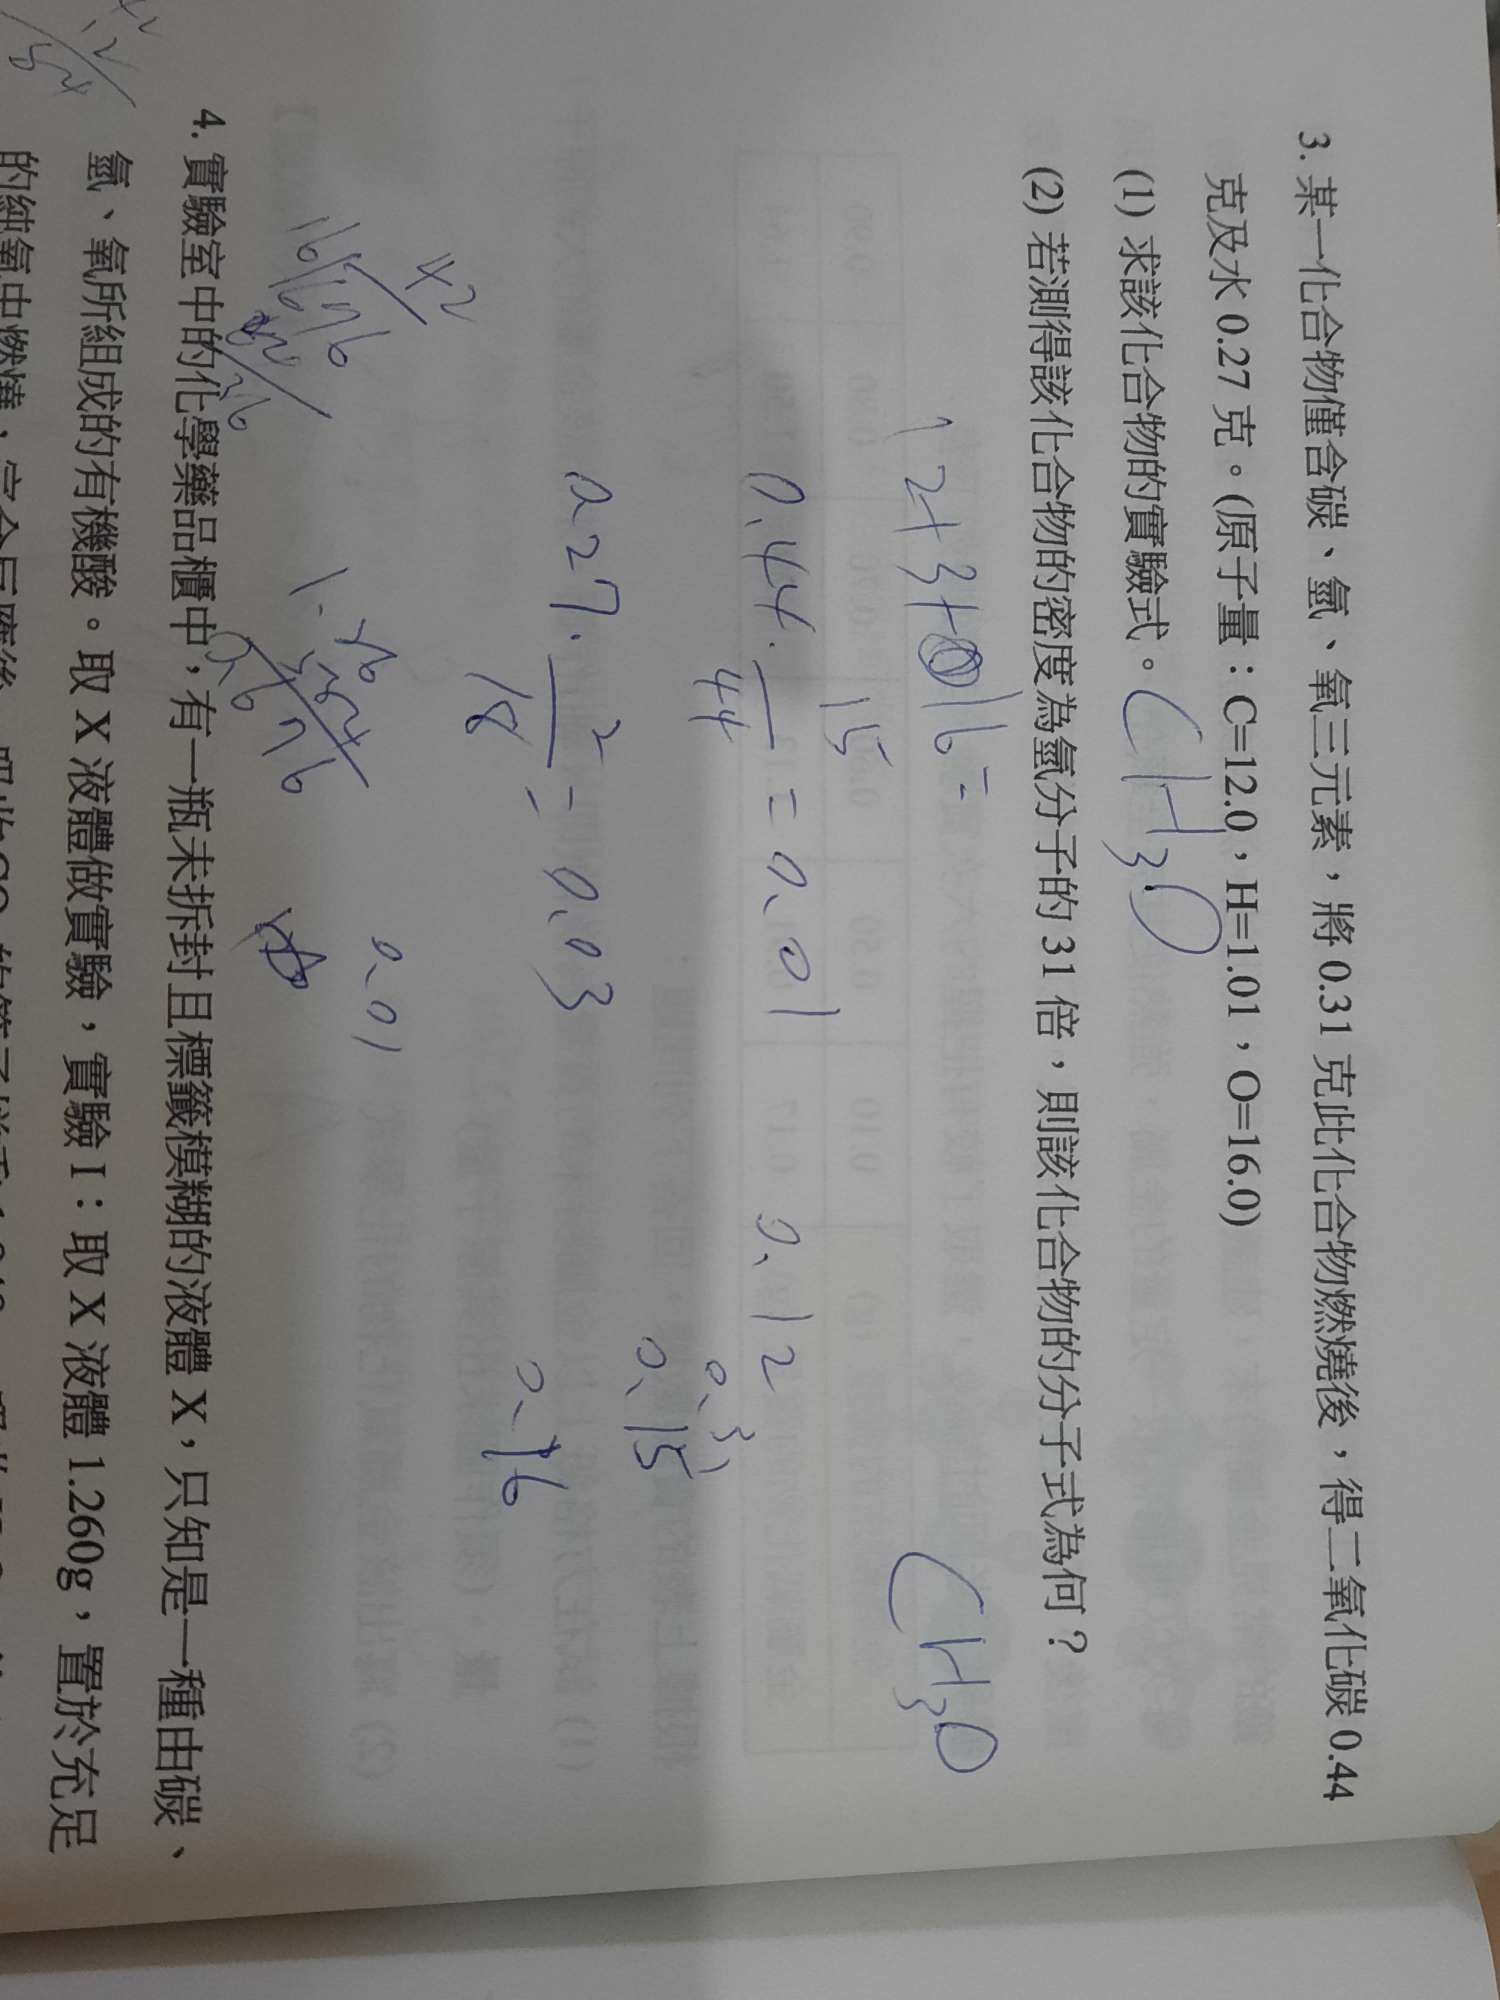 3. 某一化合物僅含碳、氫、氧三元素，將 0.31 克此化合物燃燒後，得二氧化碳 0.44
克及水 0.27 克。(原子量：C=12.0，H=1.01，O=16.0)
(1) 求該化合物的實驗式。CH3O
(2) 若測得該化合物的密度為氫氣分子的 31 倍，則該化合物的分子式為何？
12+3+16=
CH3O
15
0.44. /44 = 0.01
0.12
0.31
0.15
0.27. 2/18 = 0.03
0.16
42
0.01
4. 實驗室中的化學藥品櫃中，有一瓶未拆封且標籤模糊的液體 X，只知是一種由碳、
氫、氧所組成的有機酸。取 X 液體做實驗，實驗 I：取 X 液體 1.260g，置於充足
的純氧中燃燒，完全反應後